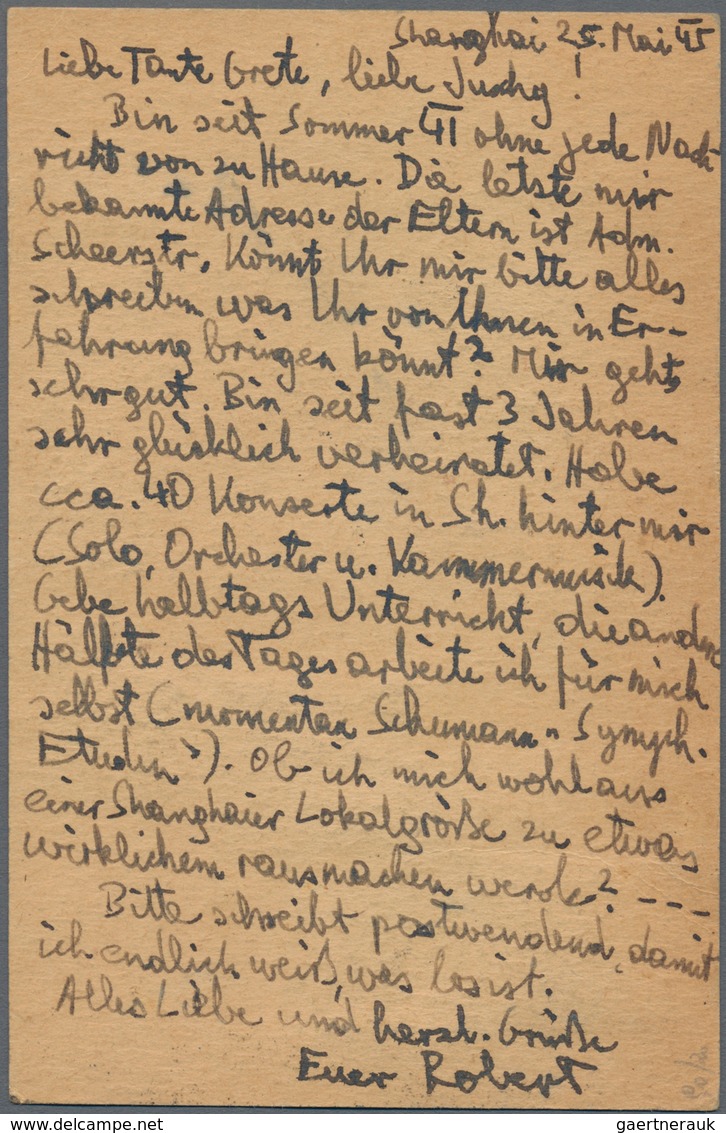 Shanghai 25. Mai 45
Liebe Tante Grete, liebe Juschy!
Bin seit Sommer 41 ohne jede Nach-
richt von zu Hause. Die letste mir
bekannte Adresse der Eltern ist Adm.
Scheerstr. Könnt Ihr mir bitte alles
schreiben was Ihr von Ihnen in Er-
fahrung bringen könnt? Mir geht's
sehr gut. Bin seit fast 3 Jahren
sehr glücklich verheiratet. Habe
cca. 40 Konserte in Sh. hinter mir
(Solo, Orchester u. Kammermusik).
Gebe halbtags Unterricht, die andere
Hälfte des Tages arbeite ich für mich
selbst (momentan Schumann "Symph.
Etuden"). Ob ich mich wohl aus
einer Shanghaier Lokalgröße zu etwas
wirklichem rausmachen werde? ---
Bitte schreibt postwendend, damit
ich endlich weiß, was los ist.
Alles Liebe und herzl. Grüße
Euer Robert
gaertnerauk